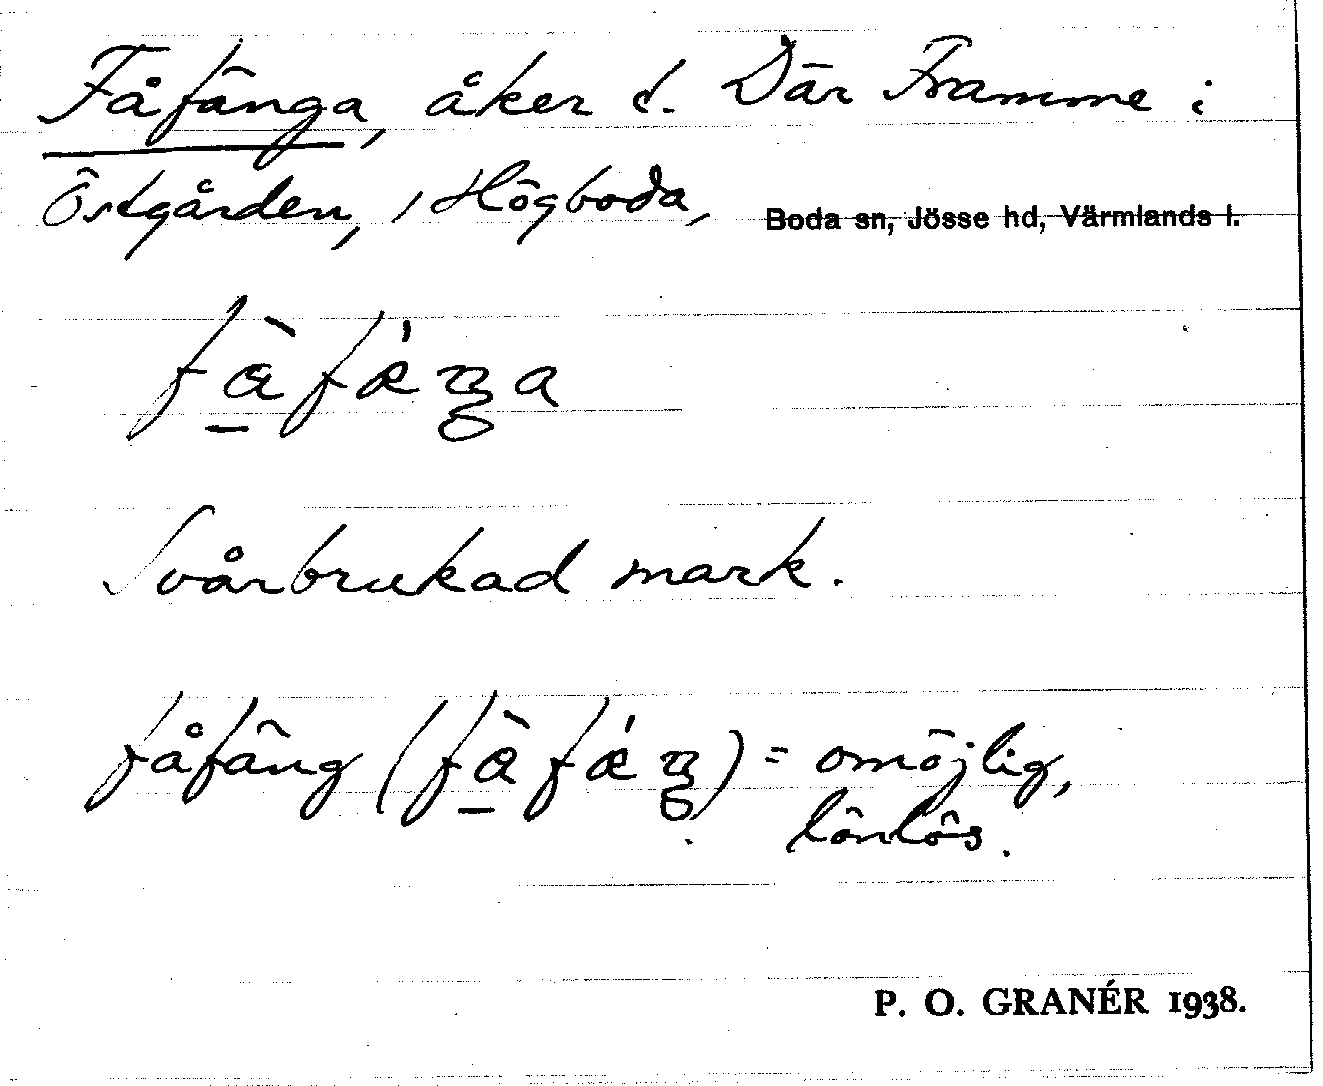 Fåfänga, åker t. Där Framme i
Östgården, i Högboda, Boda sn, Jösse hd, Värmlands l.
Svårbrukad mark.
fåfäng = omöjlig,
lönlös.
P. O. GRANÉR 1938.